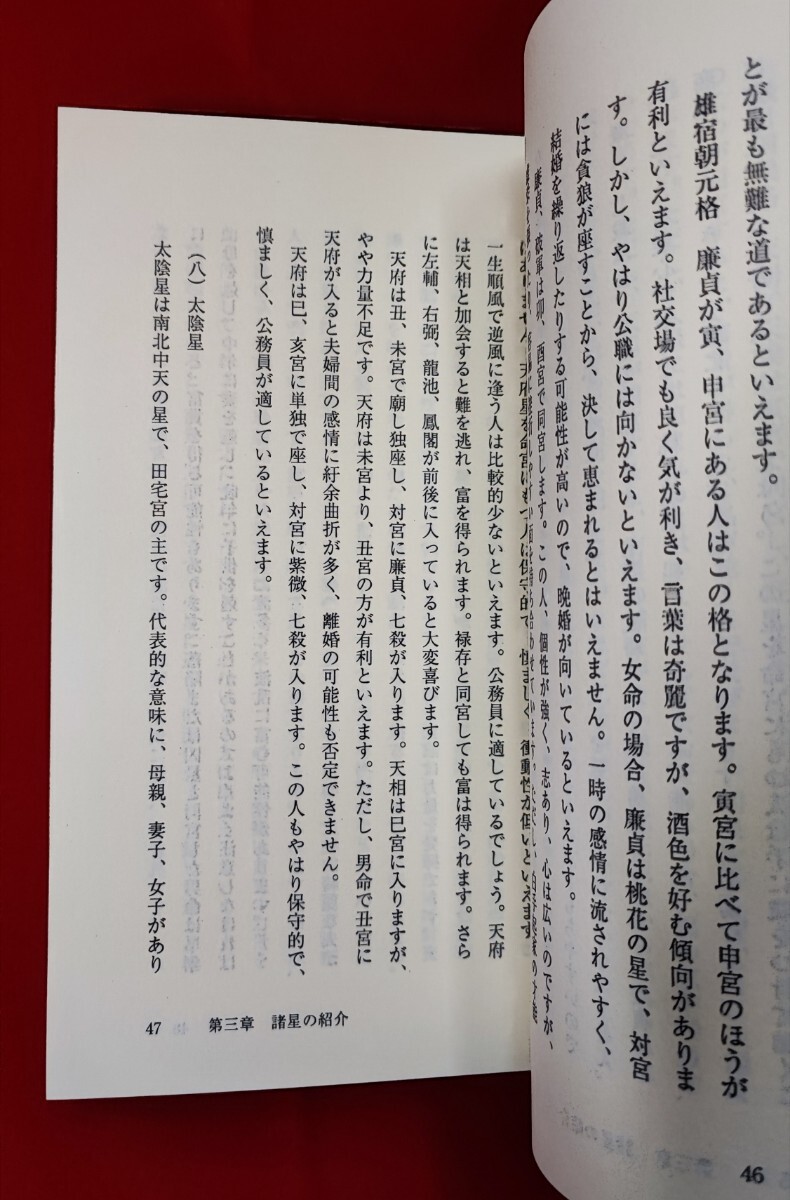 とが最も無難な道であるといえます。
雄宿朝元格　廉貞が寅、申宮にある人はこの格となります。寅宮に比べて申宮のほうが
有利といえます。社交場でも良く気が利き、言葉は奇麗ですが、酒色を好む傾向がありま
す。しかし、やはり公職には向かないといえます。女命の場合、廉貞は桃花の星で、対宮
には貪狼が座すことから、決して恵まれるとはいえません。一時の感情に流されやすく、
結婚を繰り返したりする可能性が高いので、晩婚が向いているといえます。
廉貞、破軍は卯、酉宮で同宮します。この人、個性が強く、志あり、心は広いのですが、
46
天府星を命宮にもつ人は保守的で、慎ましく、衝動性が低いといえます。
一生順風で逆風に逢う人は比較的少ないといえます。公務員に適しているでしょう。天府
は天相と加会すると難を逃れ、富を得られます。禄存と同宮しても富は得られます。さら
に左輔、右弼、龍池、鳳閣が前後に入っていると大変喜びます。
天府は丑、未宮で廟し独座し、対宮に廉貞、七殺が入ります。天相は巳宮に入りますが、
やや力量不足です。天府は未宮より、丑宮の方が有利といえます。ただし、男命で丑宮に
天府が入ると夫婦間の感情に紆余曲折が多く、離婚の可能性も否定できません。
天府は巳、亥宮に単独で座し、対宮に紫微、七殺が入ります。この人もやはり保守的で、
慎ましく、公務員が適しているといえます。
（八）太陰星
太陰星は南北中天の星で、田宅宮の主です。代表的な意味に、母親、妻子、女子があり
47　第三章　諸星の紹介